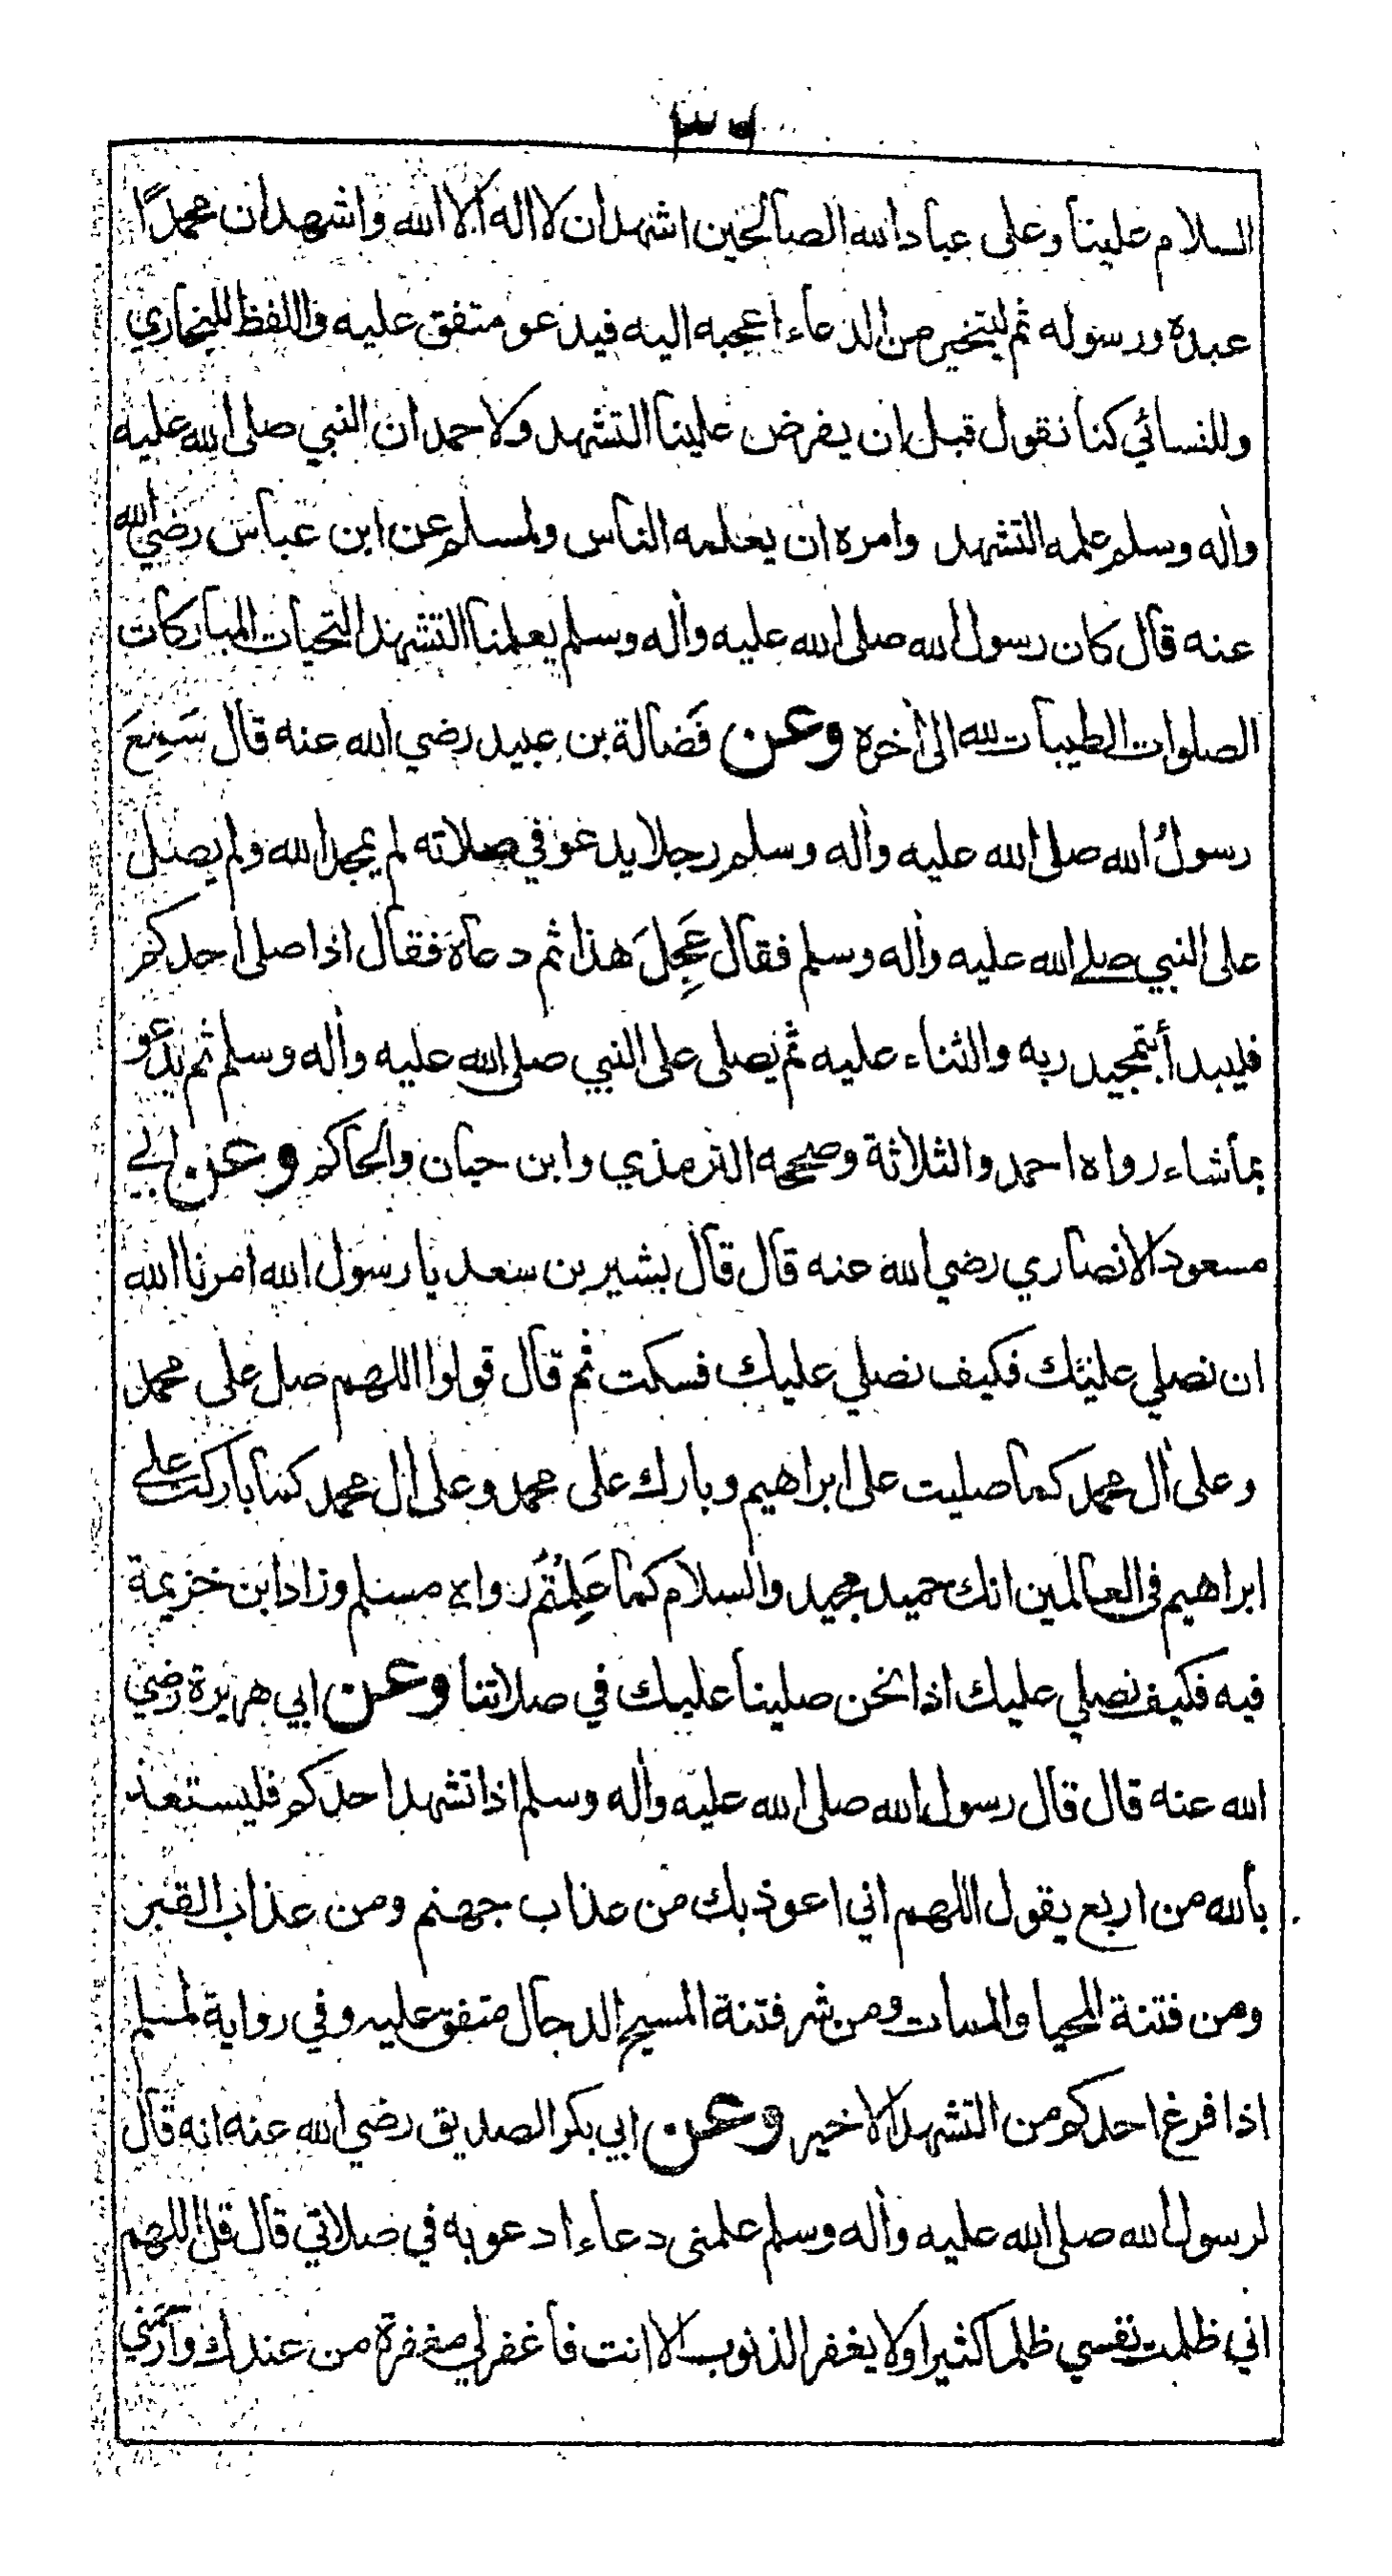 السلام علينا وعلى عباد الله الصالحين اشهد ان لا اله الا الله واشهد ان محمدًا
عبده ورسوله ثم ليتخير من الدعاء اعجبه اليه فيدعو متفق عليه واللفظ للبخاري
وللنسائي كنا نقول قبل ان يفرض علينا التشهد ولاحمد ان النبي صلى الله عليه
وأله وسلم علمه التشهد وامره ان يعلمه الناس ولمسلم عن ابن عباس رضي الله
عنه قال كان رسول الله صلى الله عليه وأله وسلم يعلمنا التشهد التحيات المباركات
الصلوات الطيبات لله الى أخره وعن فَضالة بن عبيد رضي الله عنه قال سَمِعَ
رسولُ الله صلى الله عليه وأله وسلم رجلا يدعو في صلاته لم يمجد الله ولم يصل
على النبي صلى الله عليه وأله وسلم فقال عَجِلَ هذا ثم دعاه فقال اذا صلى احدكم
فليبدأ بتمجيد ربه والثناء عليه ثم يصلى على النبي صلى الله عليه وأله وسلم ثم يدعو
بما شاء رواه احمد والثلاثة وصححه الترمذي وابن حبان والحاكم وعن ابي
مسعود الانصاري رضي الله عنه قال قال بشير بن سعد يا رسول الله امرنا الله
ان نصلي عليك فكيف نصلي عليك فسكت ثم قال قولوا اللهم صل على محمد
وعلى أل محمد كما صليت على ابراهيم وبارك على محمد وعلى أل محمد كما باركت على
ابراهيم فى العالمين انك حميد مجيد والسلام كما عَلِمْتُم رواه مسلم وزاد ابن خزيمة
فيه فكيف نصلي عليك اذا نحن صلينا عليك في صلاتنا وعن ابي هريرة رضي
الله عنه قال قال رسول الله صلى الله عليه وأله وسلم اذا تشهد احدكم فليستعذ
بالله من اربع يقول اللهم اني اعوذ بك من عذاب جهنم ومن عذاب القبر
ومن فتنة المحيا والممات ومن شر فتنة المسيح الدجال متفق عليه وفي رواية لمسلم
اذا فرغ احدكم من التشهد الاخير وعن ابي بكر الصديق رضي الله عنه انه قال
لرسول الله صلى الله عليه وأله وسلم علمنى دعاء ادعو به في صلاتي قال قل اللهم
اني ظلمت نفسي ظلما كثيرا ولا يغفر الذنوب الا انت فاغفر لي مغفرة من عندك وارحمني